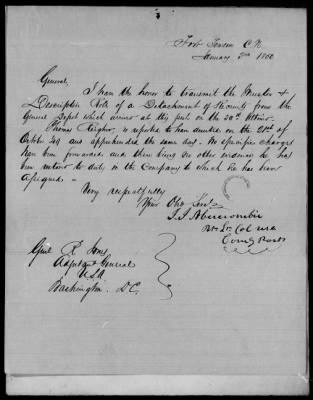 Fort Towson C.N.
January 2nd 1850
General,
I have the honor to transmit the Muster &
Descriptive Roll of a Detachment of Recruits from the
General Depot which arrived at this post on the 30th Ultimo.
Thomas is reported to have deserted on the 21st of
October /49 and apprehended the same day. No specific charges
have been forwarded and there being no other evidence he has
been returned to duty in the Company to which he has been
assigned.
Very respectfully
Your Obt Servt
J.J. Abercrombie
Bt Lt Col USA
Comdg Post
Genl R. Jones
Adjutant General
U.S.A
Washington D.C.